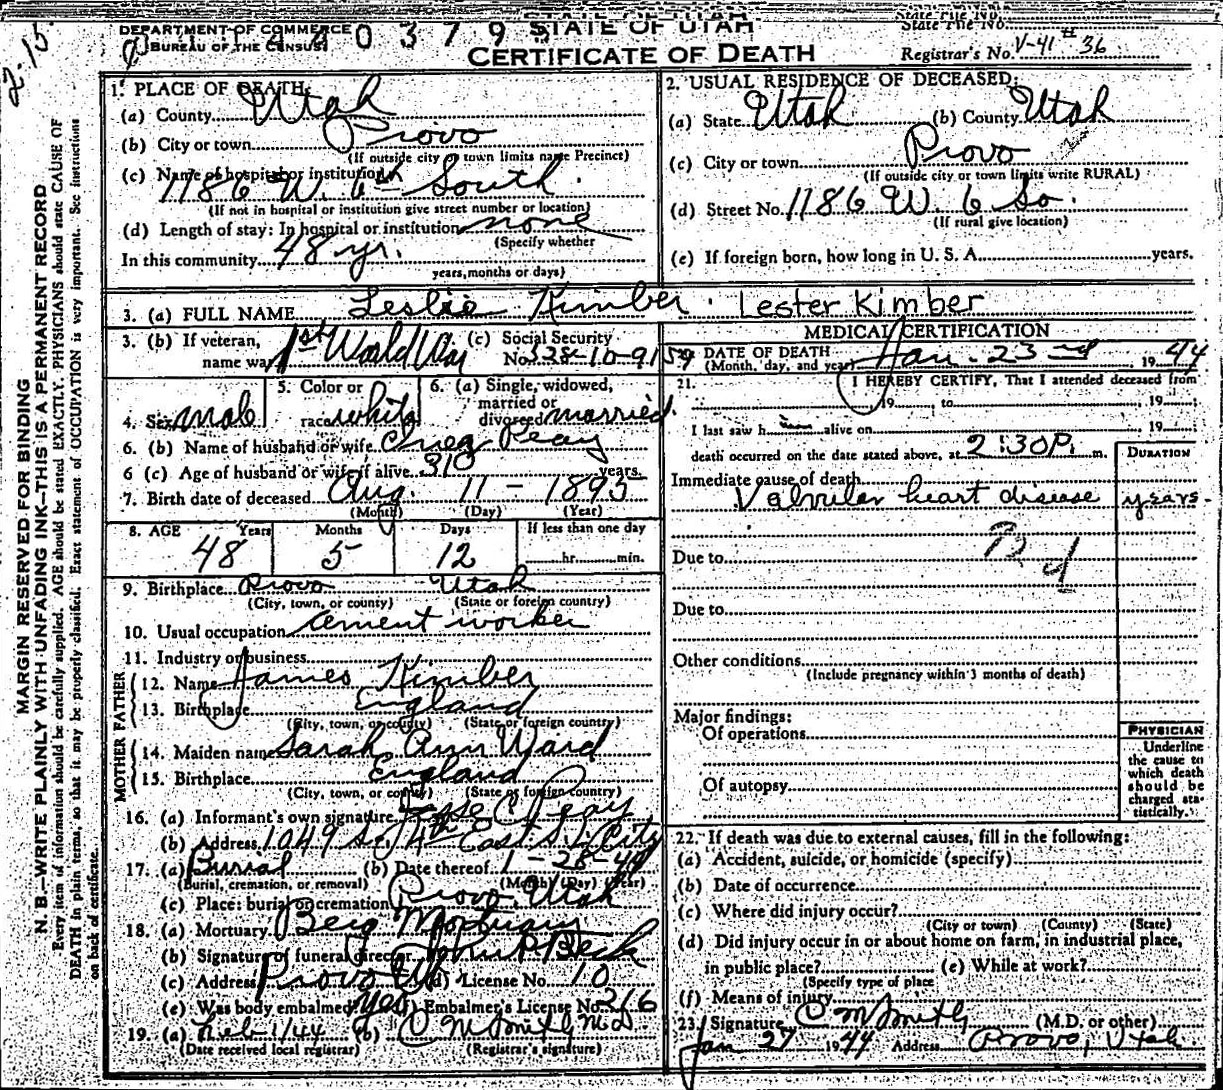 2-15
STATE OF UTAH
State File No.
DEPARTMENT OF COMMERCE
BUREAU OF THE CENSUS
0 3 7 9
STATE OF UTAH
State File No.
CERTIFICATE OF DEATH
Registrar's No. V-41 # 36
MARGIN RESERVED FOR BINDING
N. B.—WRITE PLAINLY WITH UNFADING INK—THIS IS A PERMANENT RECORD
Every item of information should be carefully supplied. AGE should be stated EXACTLY. PHYSICIANS should state CAUSE OF
DEATH in plain terms, so that it may be properly classified. Exact statement of OCCUPATION is very important. See instructions
on back of certificate.
1. PLACE OF DEATH:
(a) County Utah
(b) City or town Provo
(If outside city or town limits name Precinct)
(c) Name of hospital or institution
1186 W. 6th South.
(If not in hospital or institution give street number or location)
(d) Length of stay: In hospital or institution none
(Specify whether
In this community 48 yr.
years, months or days)
2. USUAL RESIDENCE OF DECEASED:
(a) State Utah (b) County Utah
(c) City or town Provo
(If outside city or town limits write RURAL)
(d) Street No. 1186 W 6 So.
(If rural give location)
(e) If foreign born, how long in U. S. A. years.
3. (a) FULL NAME Leslie Kimber. Lester Kimber
3. (b) If veteran, name war 1st World War (c) Social Security No. 528-10-9159
4. Sex male
5. Color or race white
6. (a) Single, widowed, married or divorced married
6. (b) Name of husband or wife Peay
6 (c) Age of husband or wife if alive years.
7. Birth date of deceased Aug. 11 - 1895
(Month) (Day) (Year)
8. AGE Years Months Days If less than one day
48 5 12 hr. min.
9. Birthplace Provo Utah
(City, town, or county) (State or foreign country)
10. Usual occupation cement worker
11. Industry or business
FATHER
12. Name James Kimber
13. Birthplace England
(City, town, or county) (State or foreign country)
MOTHER
14. Maiden name Sarah Ann Ward
15. Birthplace England
(City, town, or county) (State or foreign country)
16. (a) Informant's own signature Jesse C Peay
(b) Address 1049 So. 4th East S. L. City
17. (a) Burial (b) Date thereof 1-28-44
(Burial, cremation, or removal) (Month) (Day) (Year)
(c) Place: burial or cremation Provo Utah
18. (a) Mortuary Berg Mortuary
(b) Signature of funeral director John P Beck
(c) Address Provo U (d) License No. 10
(e) Was body embalmed yes (f) Embalmer's License No. 266
19. (a) Feb 1/44 (b) C M Smith M D
(Date received local registrar) (Registrar's signature)
MEDICAL CERTIFICATION
DATE OF DEATH Jan. 23rd 1944
(Month, day, and year)
21. I HEREBY CERTIFY, That I attended deceased from
19 to 19
I last saw h alive on 19
death occurred on the date stated above, at 2:30P. m.
DURATION
Immediate cause of death
Valvular heart disease years.
Due to 92 d
Due to
Other conditions
(Include pregnancy within 3 months of death)
Major findings:
Of operations
Of autopsy
PHYSICIAN
Underline
the cause to
which death
should be
charged sta-
tistically.
22. If death was due to external causes, fill in the following:
(a) Accident, suicide, or homicide (specify)
(b) Date of occurrence
(c) Where did injury occur?
(City or town) (County) (State)
(d) Did injury occur in or about home on farm, in industrial place,
in public place? (e) While at work?
(Specify type of place
(f) Means of injury
23. Signature C M Smith (M.D. or other)
Jan 27 1944 Address Provo, Utah